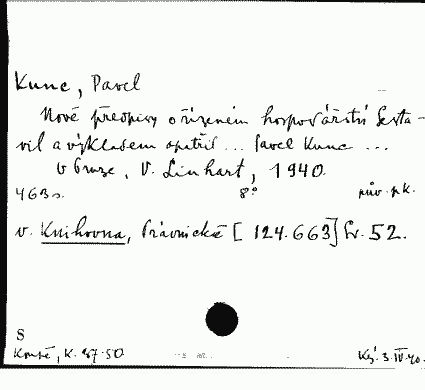 Kunc, Pavel
Nové předpisy o řízeném hospodářství Sesta-
vil a výkladem opatřil ... Pavel Kunc ...
V Praze, V. Linhart, 1940.
463 s. 8° pův. pk.
v. Knihovna, Právnická [124.663] Sv. 52.
S
Koupě, K. 87.50 Kř. 3.IV.40.